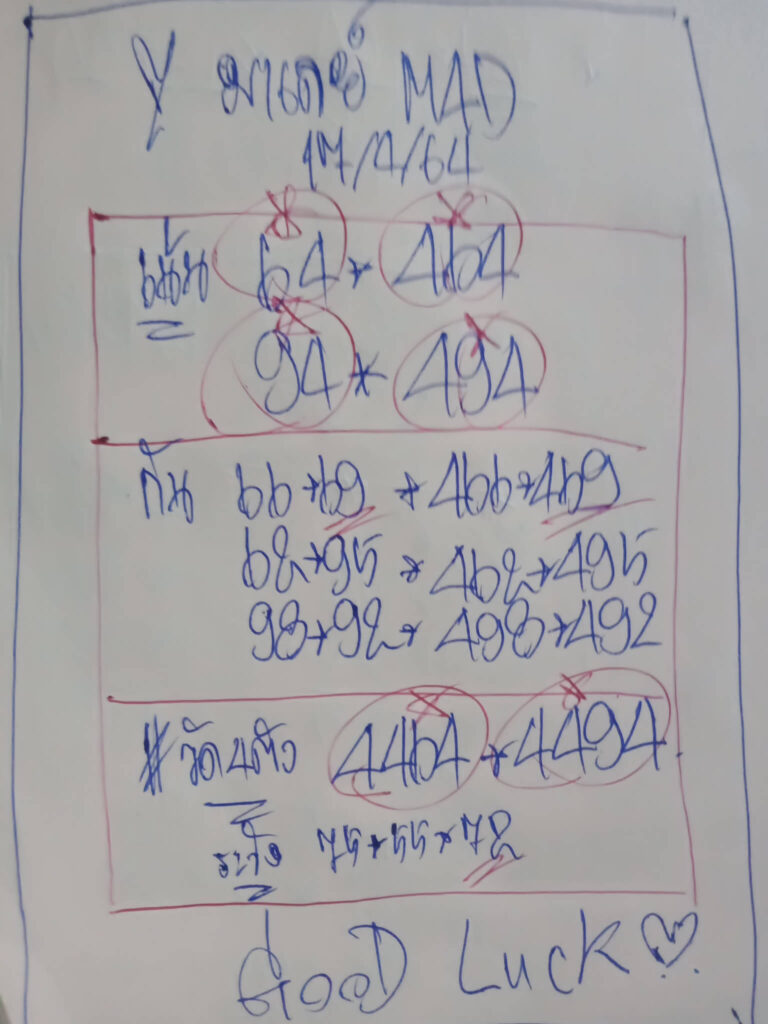 Y มาเลย์ M4D
17/4/64
เน้น 64 * 464
94 * 494
กัน 66*69 * 466*469
62*95 * 462*495
98*92* 498*492
#วัด4ตัว 4464 * 4494
ระวัง 75*55*72
GOOD LUCK♡